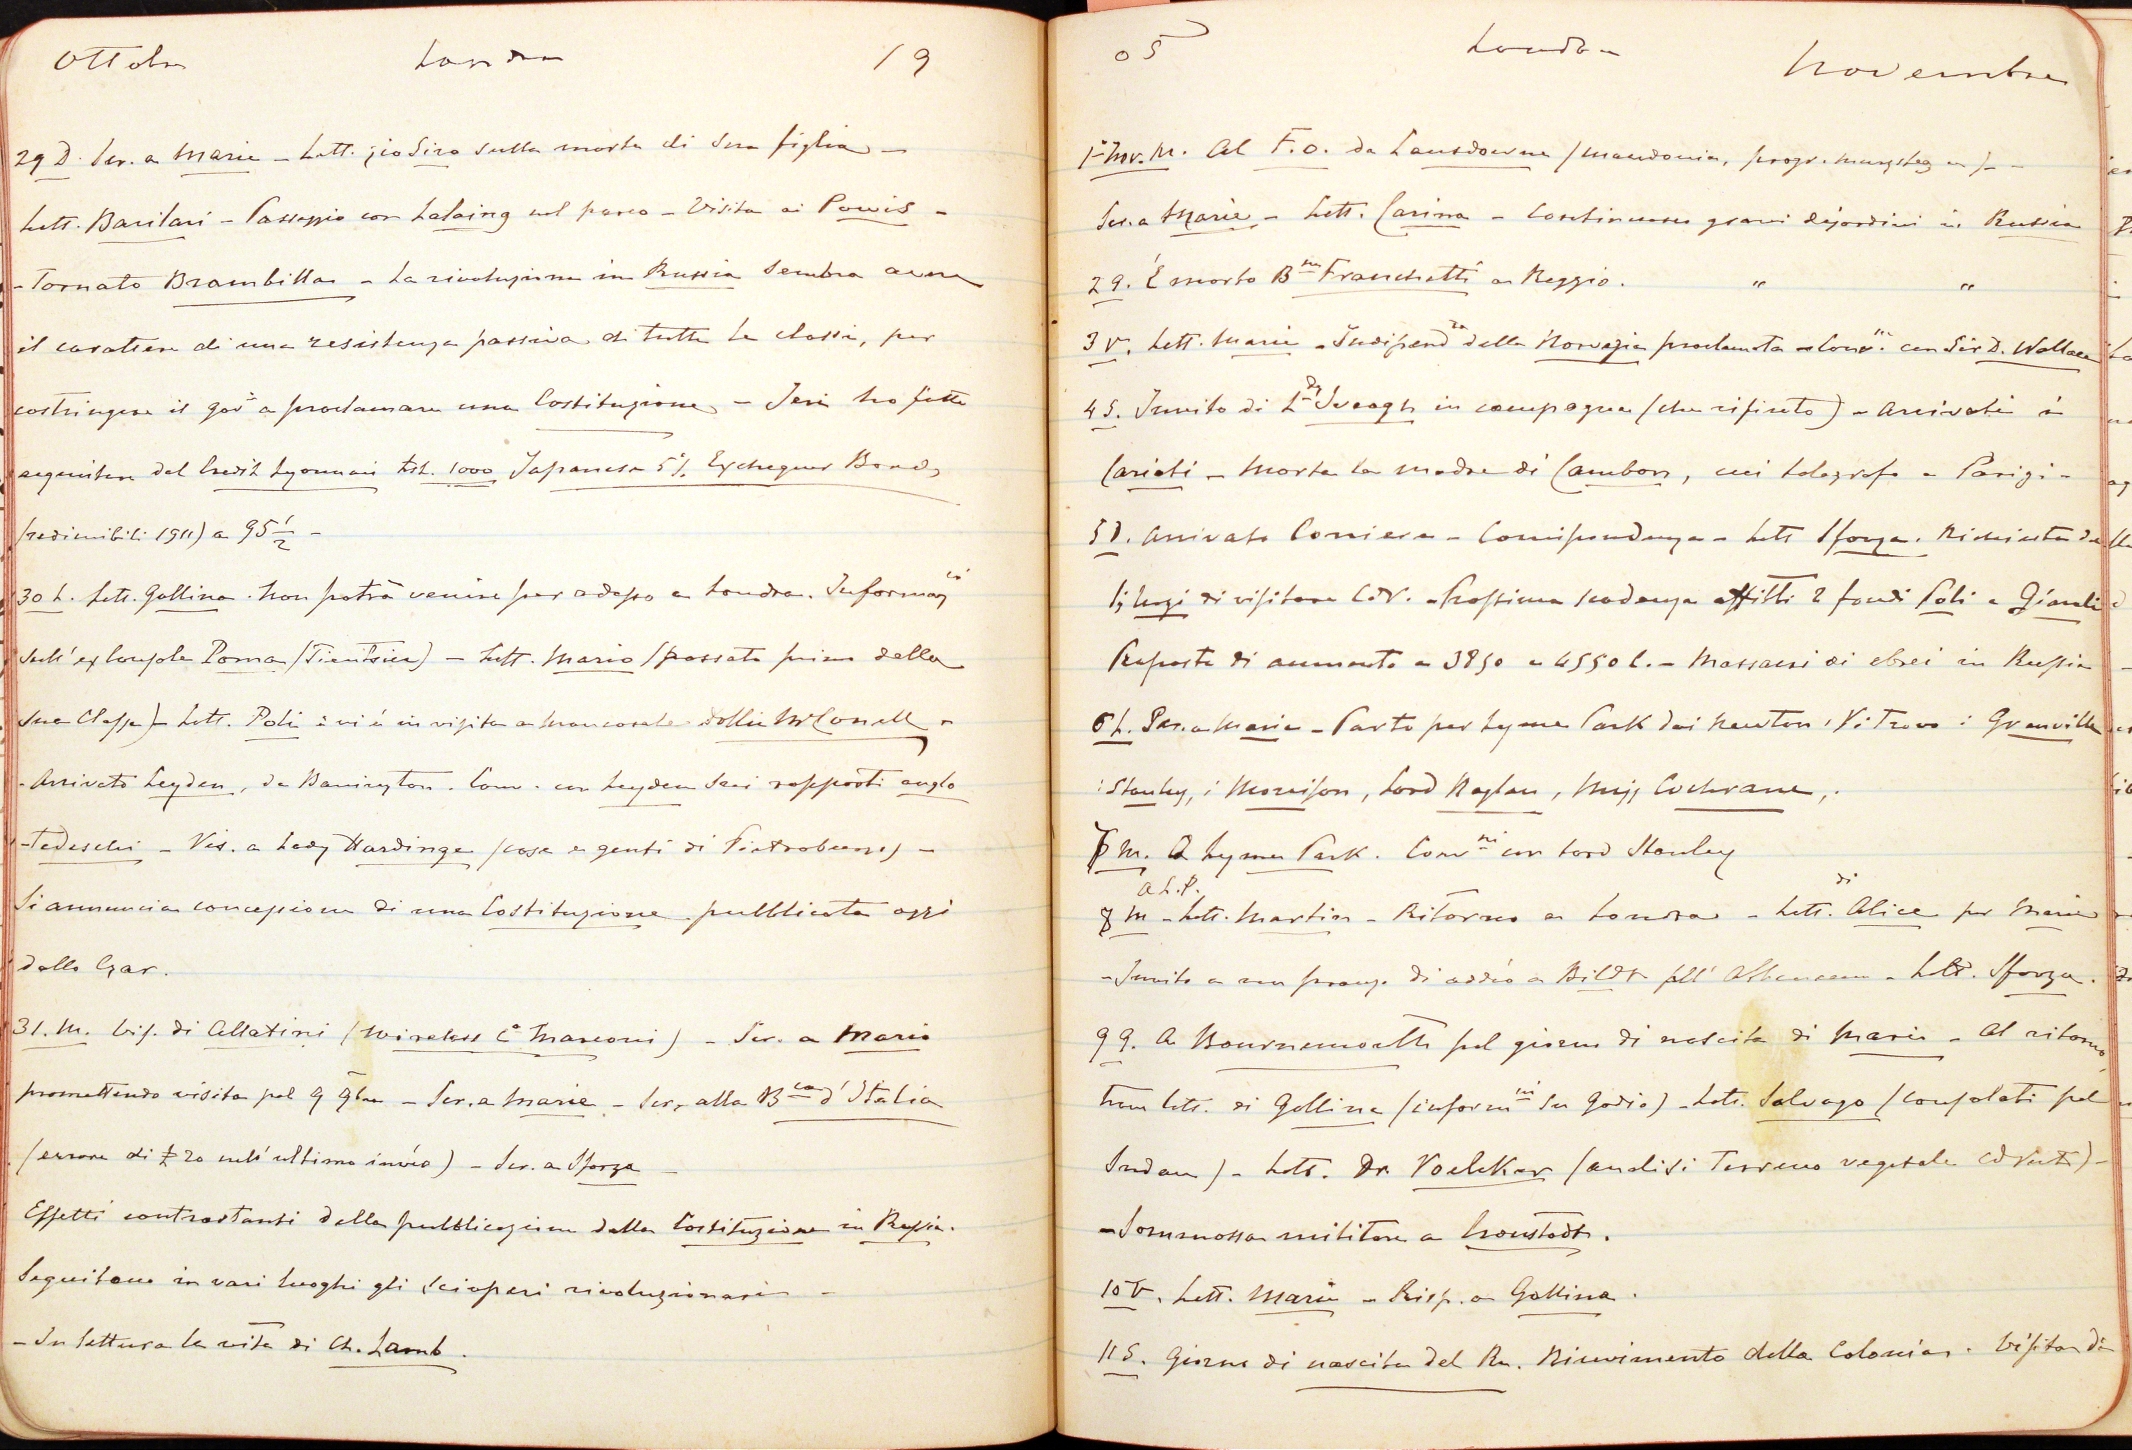 Ottobre Londra 19
29 D. Scr. a Marie - Lett. zio Siro sulla morte di sua figlia -
Lett. Barilari - Passeggio con Lalaing nel parco - Visita ai Powis -
- Tornato Brambilla - La rivoluzione in Russia sembra avere
il carattere di una resistenza passiva di tutte le classi, per
costringere il govo a proclamare una Costituzione - Ieri ho fatto
acquistare dal Credit Lyonnais Lst. 1000 Japanese 5% Exchequer Bonds
(redimibili 1911) a 95 1/2 -
30 L. Lett. Gallina. Non potrà venire per adesso a Londra. Informazni
sull'ex console Poma (Tientsin) - Lett. Mario (passato primo della
sua classe) - Lett. Poli: vi è in visita a Dollie McConell -
- Arrivato Leyden, da Conv. con Leyden sui rapporti anglo
-tedeschi - Vis. a Lady Hardinge (cose e genti di Pietroburgo) -
Si annuncia concessione di una Costituzione pubblicata oggi
dallo Czar.
31. M. Vis. di Allatini (Wireless Co Marconi) - Scr. a Mario
promettendo visita pel 9 9bre - Scr. a Marie - Scr. alla Bca d'Italia
(errore di £ 20 nell'ultimo invio) - Scr. a Sforza -
Effetti contrastanti della pubblicazione della Costituzione in Russia.
Seguitano in vari luoghi gli scioperi rivoluzionari -
- In lettura la vita di Ch. Lamb.
05 Londra Novembre
1º Nov. M. Al F.O. da Lansdowne (Macedonia, progr. Murzsteg) -
Scr. a Marie - Lett. Carina - Continuano gravi disordini in Russia
2 G. È morto Bne Franchetti a Reggio. " "
3 V. Lett. Marie - Indipendza della Norvegia proclamata - Convne con Sir D. Wallace
4 S. Invito di Ldy Iveagh in campagna (che rifiuto) - Arrivati i
Cariati - Morta la madre di Cambon, cui telegrafo a Parigi -
5 D. Arrivato Corriere - Corrispondenza - Lett Sforza. Richiesta
di visitare CdV. - Prossima scadenza affitti 2 fondi Poli e
Proposta di aumento a 3850 e 4550 L. - Massacri di ebrei in Russia
6 L. Scr. a Marie - Parto per Lyme Park dai Newton. Vi trovo i Granville
i Stanley, i Morrison, Lord Raglan, Miss Cochrane,
7 M. A Lyme Park. Convni con Lord Stanley
a L.P.
8 M - Lett. Martin - Ritorno a Londra - Lett. di Alice per Marie
- Invito a un pranzo di addio a Bildt all'Athenaeum - Lett. Sforza.
9 G. A Bournemouth pel giorno di nascita di Mario - Al ritorno,
trovo lett. di Gallina (informni su Godio) - Lett. Salvago (consolati pel
Sudan) - Lett. Dr. Voelcker (analisi terreno vegetale CdVent) -
- Sommossa militare a Cronstadt.
10 V. Lett. Marie - Risp. a Gallina.
11 S. Giorno di nascita del Re. Ricevimento della Colonia. Visita di